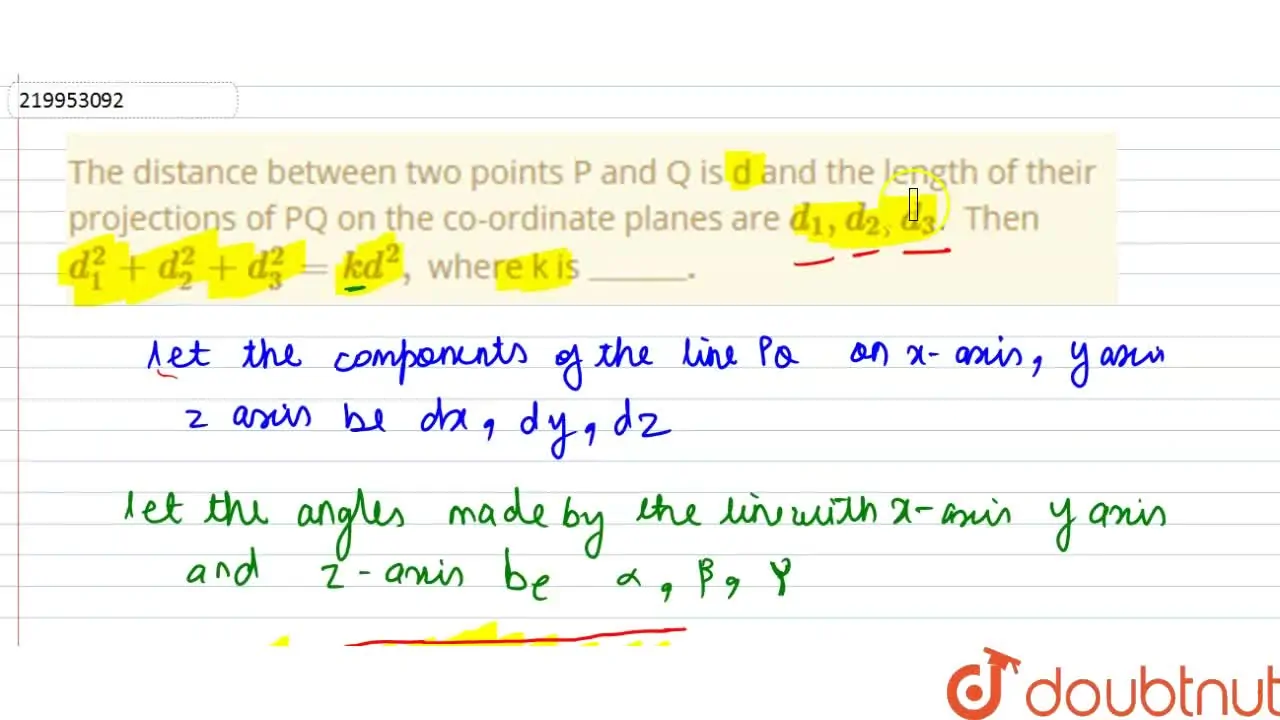 219953092
The distance between two points P and Q is d and the length of their
projections of PQ on the co-ordinate planes are d₁, d₂, d₃. Then
d₁² + d₂² + d₃² = kd², where k is ______.
let the components of the line PQ on x-axis, y axis
z axis be dx, dy, dz
let the angles made by the line with x-axis y axis
and z-axis be α, β, γ
doubtnut